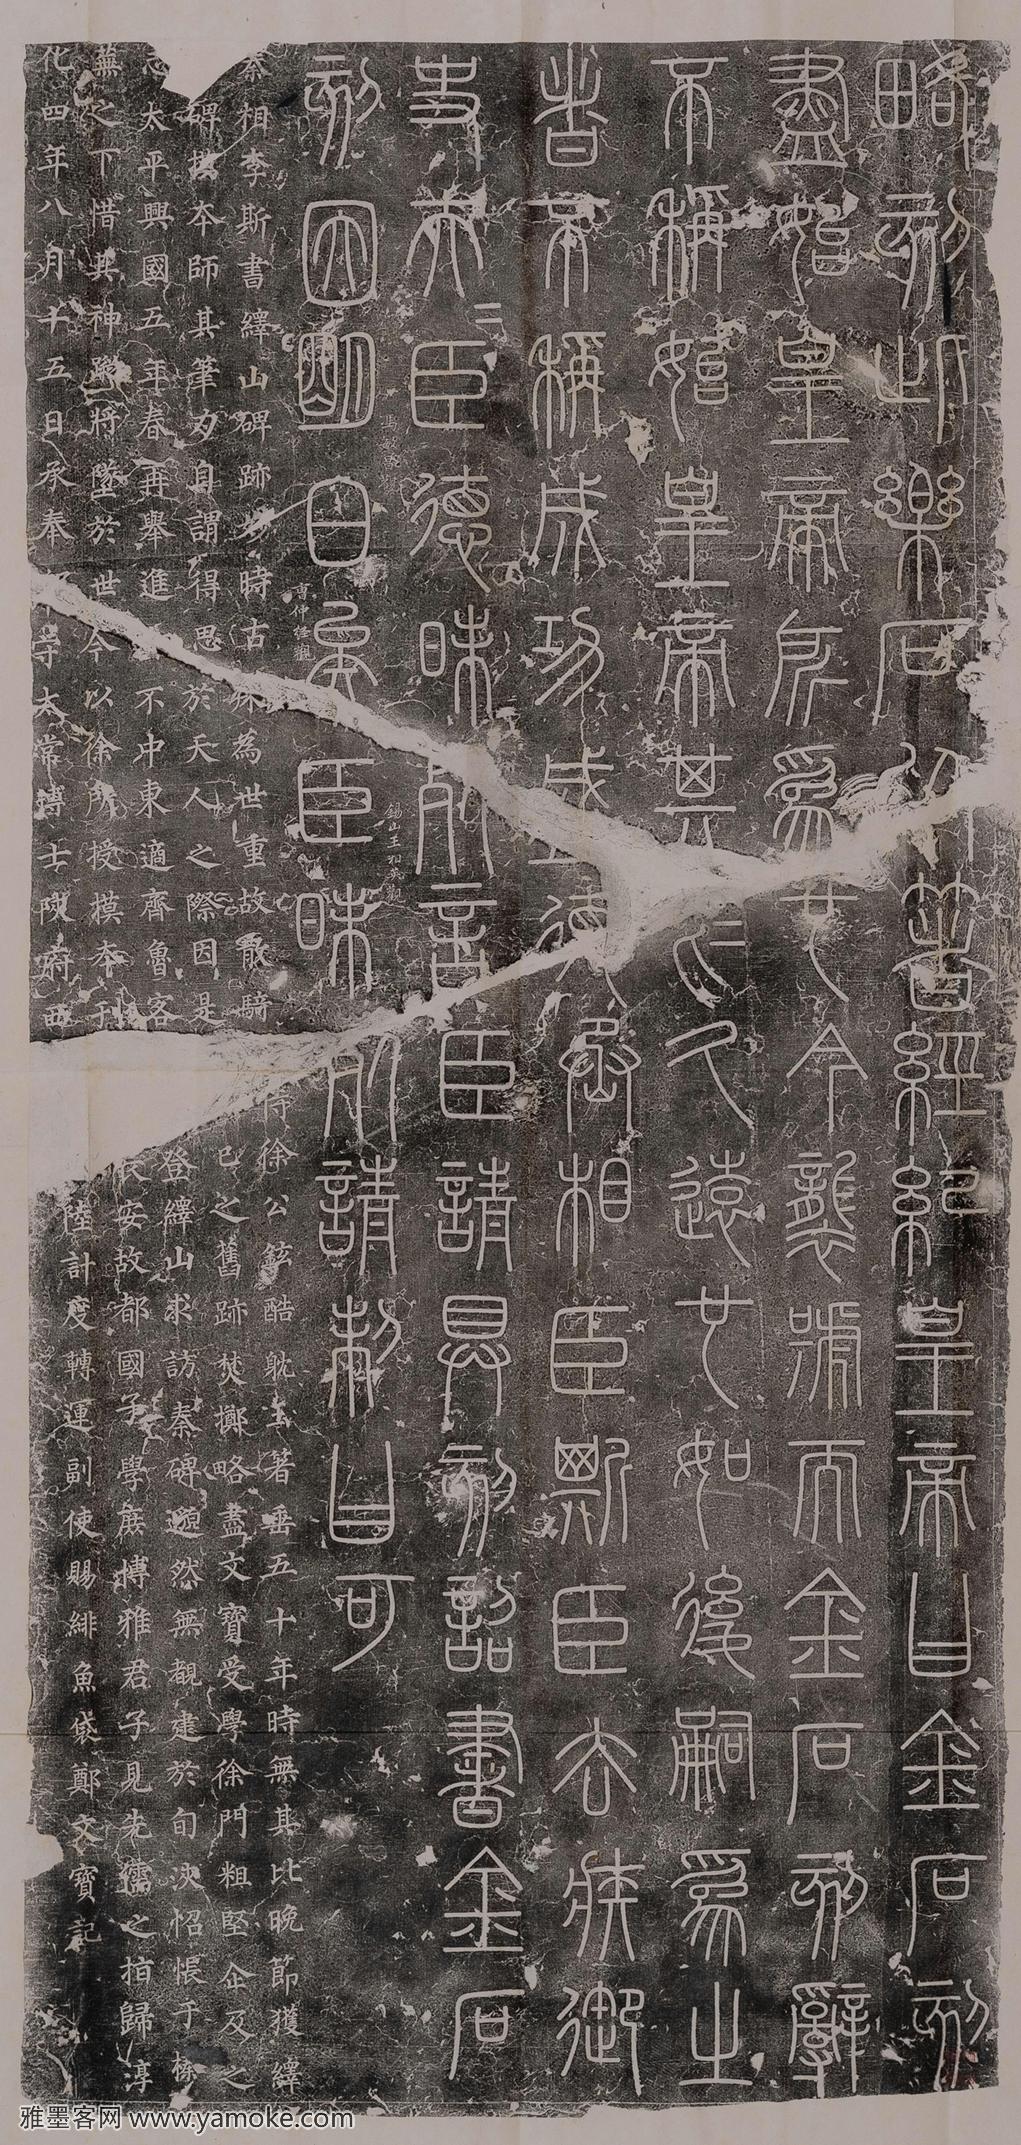 略刻此樂石以著經紀皇帝曰金石刻
盡始皇帝所為也今襲號而金石刻辭
不稱始皇帝其于久遠也如後嗣為之
者不稱成功盛德丞相臣斯臣去疾御
史夫二臣德昧死言臣請具刻詔書金石
刻因明白矣臣昧死請制曰可
秦相李斯書繹山碑跡妙時古殊為世重故散騎侍徐公鉉酷躭玉著垂五十年時無其比晚節獲繹
碑摸本師其筆力自謂得思於天人之際因是己之舊跡焚擲略盡文寶受學徐門粗堅企及之
志太平興國五年春再舉進不中東適齊魯客登繹山求訪秦碑邈然無覩逮於旬浹怊悵于榛
蕪之下惜其神蹤將墜於世今以徐所授摸本刊長安故都國子學庶博雅君子見先儒之指歸淳
化四年八月十五日承奉守太常博士陝府西陸計度轉運副使賜緋魚袋鄭文寶記
雅墨客网 www.yamoke.com